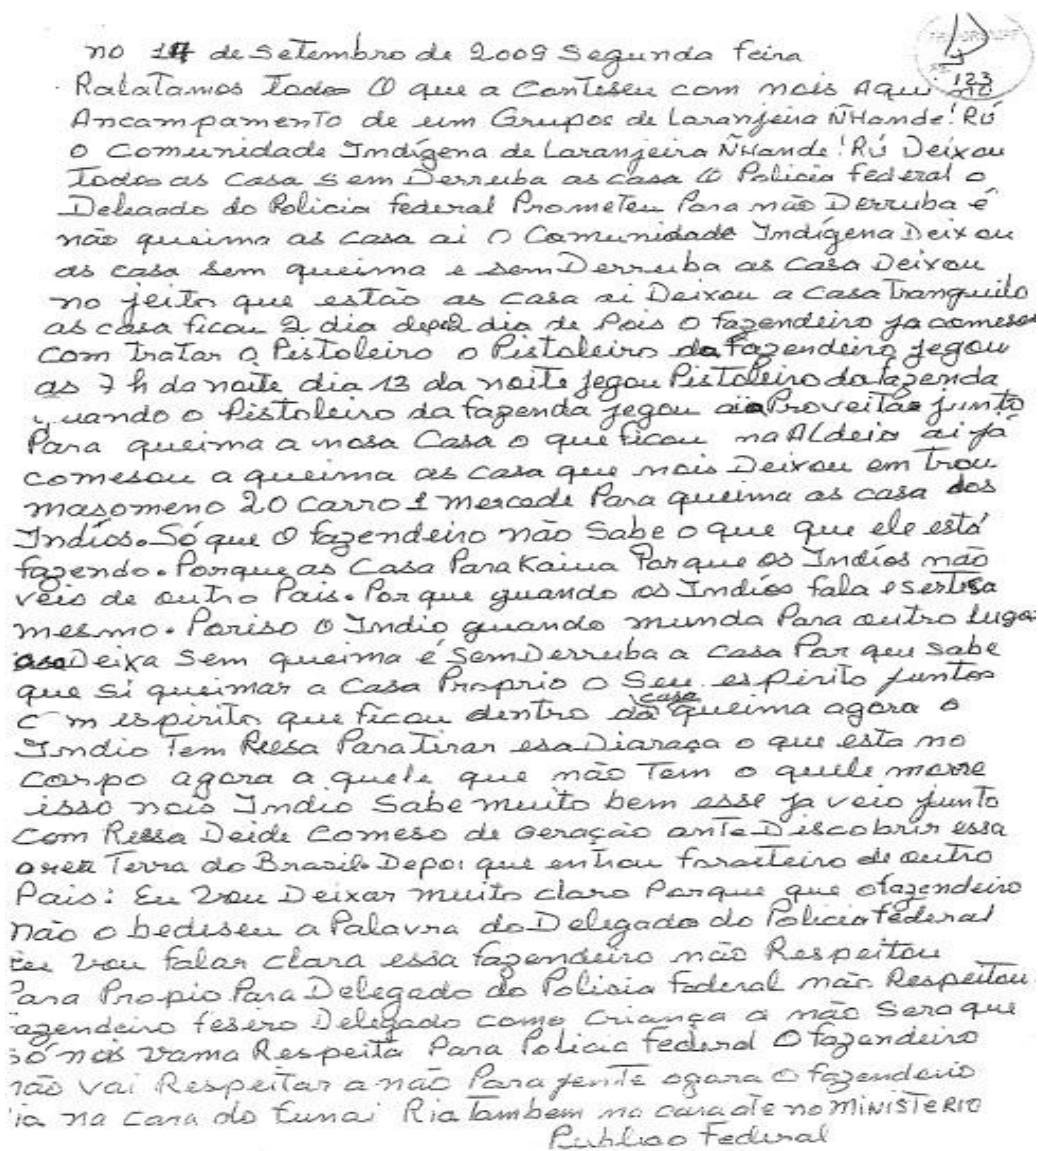 no 14 de Setembro de 2009 Segunda feira
123
Ralatamos todos O que a Conteseu com nois Aqui no
Ancampamento de um Grupos de Laranjeira ÑHande! RÚ
O Comunidade Indígena de Laranjeira ÑHande! RÚ Deixou
todos as Casa sem Derruba as casa O Policia federal o
Delegado do Policia federal Prometeu Para não Derruba é
não queima as casa ai O Comunidade Indígena Deixou
as casa sem queima e sem Derruba as Casa Deixou
no jeito que estão as casa ai Deixou a Casa tranquilo
as casa ficou 2 dia 2 dia de Pois o fazendeiro ja comeso
com tratar o Pistoleiro o Pistoleiro da fazendeiro jegou
as 7 h da noite dia 13 da noite jegou Pistoleiro da fazenda
quando o Pistoleiro da fazenda jegou Proveita junto
Para queima a nosa Casa o que ficou na ALdeia ai já
comesou a queima as casa que nois Deixou em trou
masomeno 20 Carro 1 Mercede Para queima as casa dos
Indíos. Só que O fazendeiro não Sabe o que que ele está
fazendo. Porque as Casa Para Kaiua Porque os Indíos não
veis de outro Pais. Por que quando os Indíos fala e sertesa
mesmo. Poriso O Indio quando munda Para outro luga
Deixa Sem queima é Sem Derruba a casa Por qeu sabe
que si queimar a Casa Proprio o Seu espirito juntos
Cm espirito que ficou dentro da casa queima agora o
Indio Tem Reesa Para tirar esa Diaraça o que esta no
corpo agora a quele que não Tem o quele morre
isso nois Indio Sabe muito bem esse ja veio junto
com Ressa Deide Comeso de Geração ante Discobrir essa
Terra do Brasil. Depoi que entrou forasteiro de outro
Pais: Eu Vou Deixar muito claro Porque que o fazendeiro
não o bediseu a Palavra do Delegado do Policia federal
Eu Vou falar clara essa fazendeiro não Respeitou
Para Propio Para Delegado do Policia federal não Respeitou
azendeiro fesero Delegado como Criança a não Sera que
só nois vama Respeita Para Policia federal O fazendeiro
não vai Respeitar a não Para jente agora O fazendeiro
ia na cara do funai Ria tambem na cara ate no MINISTERIO
Publico Federal